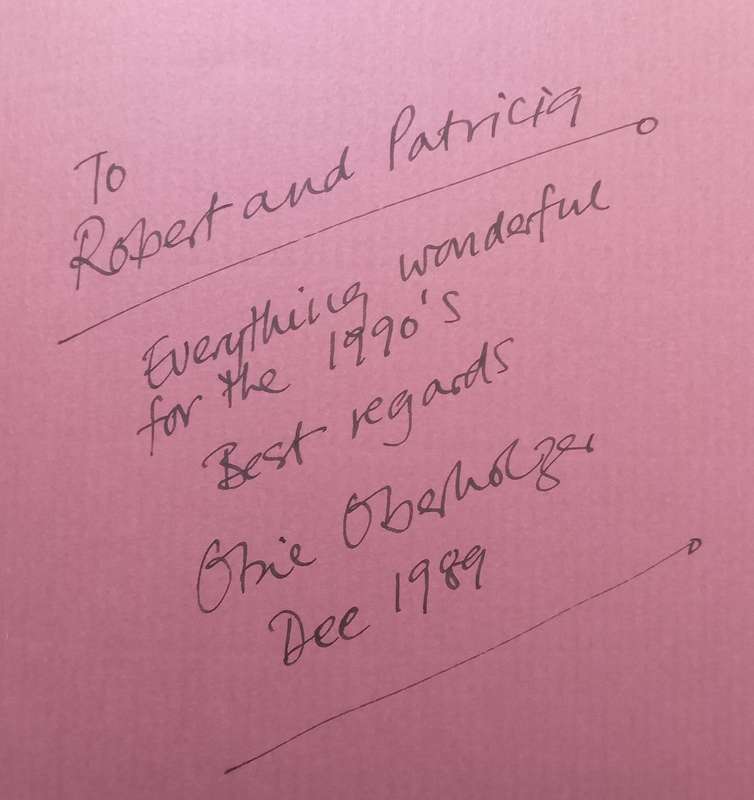 To
Robert and Patricia
Everything wonderful
for the 1990's
Best regards
Obie Oberholzer
Dec 1989